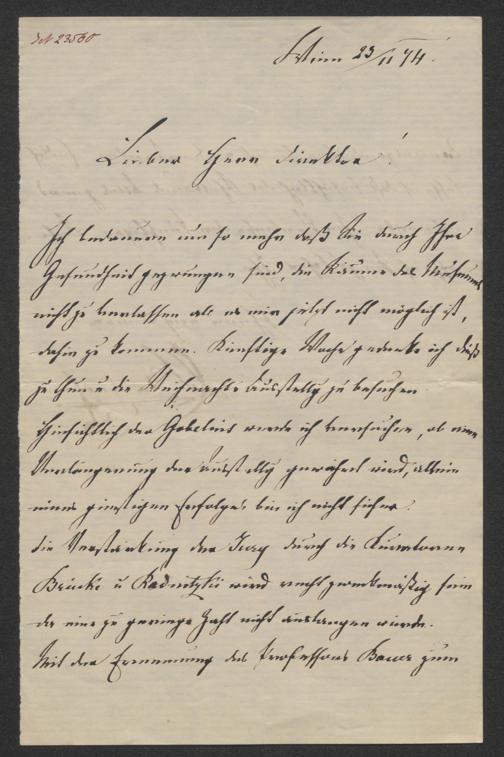 Wien 23/11 74.
Lieber Herr Direktor!
Ich bedauere um so mehr daß Sie durch Ihre
Gesundheit gezwungen sind, die Räume des Museums
nicht zu verlassen als es mir jetzt nicht möglich ist,
dahin zu kommen. Künftige Woche gedenke ich dieß
zu thun u die Weihnachts Ausstellg zu besuchen.
Hinsichtlich der Gobelins werde ich versuchen, ob eine
Verlängerung der Ausstellg gewährt wird, allein
eines günstigen Erfolges bin ich nicht sicher.
Die Verstärkung der Jury durch die Kuratoren
Brücke u Radnitzki wird recht zweckmäßig sein
da eine zu geringe Zahl nicht auslangen würde.
Mit der Ernennung des Professors Bauer zum